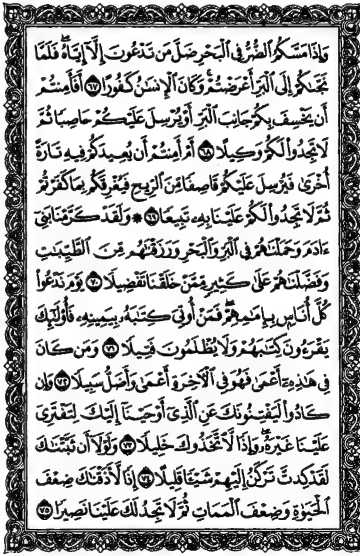 وَإِذَا مَسَّكُمُ الضُّرُّ فِي الْبَحْرِ ضَلَّ مَن تَدْعُونَ إِلَّا إِيَّاهُ فَلَمَّا
نَجَّىٰكُمْ إِلَى الْبَرِّ أَعْرَضْتُمْ وَكَانَ الْإِنسَٰنُ كَفُورًا ٦٧ أَفَأَمِنتُمْ
أَن يَخْسِفَ بِكُمْ جَانِبَ الْبَرِّ أَوْ يُرْسِلَ عَلَيْكُمْ حَاصِبًا ثُمَّ
لَا تَجِدُوا لَكُمْ وَكِيلًا ٦٨ أَمْ أَمِنتُمْ أَن يُعِيدَكُمْ فِيهِ تَارَةً
أُخْرَىٰ فَيُرْسِلَ عَلَيْكُمْ قَاصِفًا مِّنَ الرِّيحِ فَيُغْرِقَكُم بِمَا كَفَرْتُمْ
ثُمَّ لَا تَجِدُوا لَكُمْ عَلَيْنَا بِهِ تَبِيعًا ٦٩ ۞ وَلَقَدْ كَرَّمْنَا بَنِي
ءَادَمَ وَحَمَلْنَٰهُمْ فِي الْبَرِّ وَالْبَحْرِ وَرَزَقْنَٰهُم مِّنَ الطَّيِّبَٰتِ
وَفَضَّلْنَٰهُمْ عَلَىٰ كَثِيرٍ مِّمَّنْ خَلَقْنَا تَفْضِيلًا ٧٠ يَوْمَ نَدْعُوا
كُلَّ أُنَاسٍ بِإِمَٰمِهِمْ فَمَنْ أُوتِيَ كِتَٰبَهُ بِيَمِينِهِ فَأُولَٰئِكَ
يَقْرَءُونَ كِتَٰبَهُمْ وَلَا يُظْلَمُونَ فَتِيلًا ٧١ وَمَن كَانَ
فِي هَٰذِهِ أَعْمَىٰ فَهُوَ فِي الْآخِرَةِ أَعْمَىٰ وَأَضَلُّ سَبِيلًا ٧٢ وَإِن
كَادُوا لَيَفْتِنُونَكَ عَنِ الَّذِي أَوْحَيْنَا إِلَيْكَ لِتَفْتَرِيَ
عَلَيْنَا غَيْرَهُ وَإِذًا لَّاتَّخَذُوكَ خَلِيلًا ٧٣ وَلَوْلَا أَن ثَبَّتْنَٰكَ
لَقَدْ كِدتَّ تَرْكَنُ إِلَيْهِمْ شَيْئًا قَلِيلًا ٧٤ إِذًا لَّأَذَقْنَٰكَ ضِعْفَ
الْحَيَوٰةِ وَضِعْفَ الْمَمَاتِ ثُمَّ لَا تَجِدُ لَكَ عَلَيْنَا نَصِيرًا ٧٥